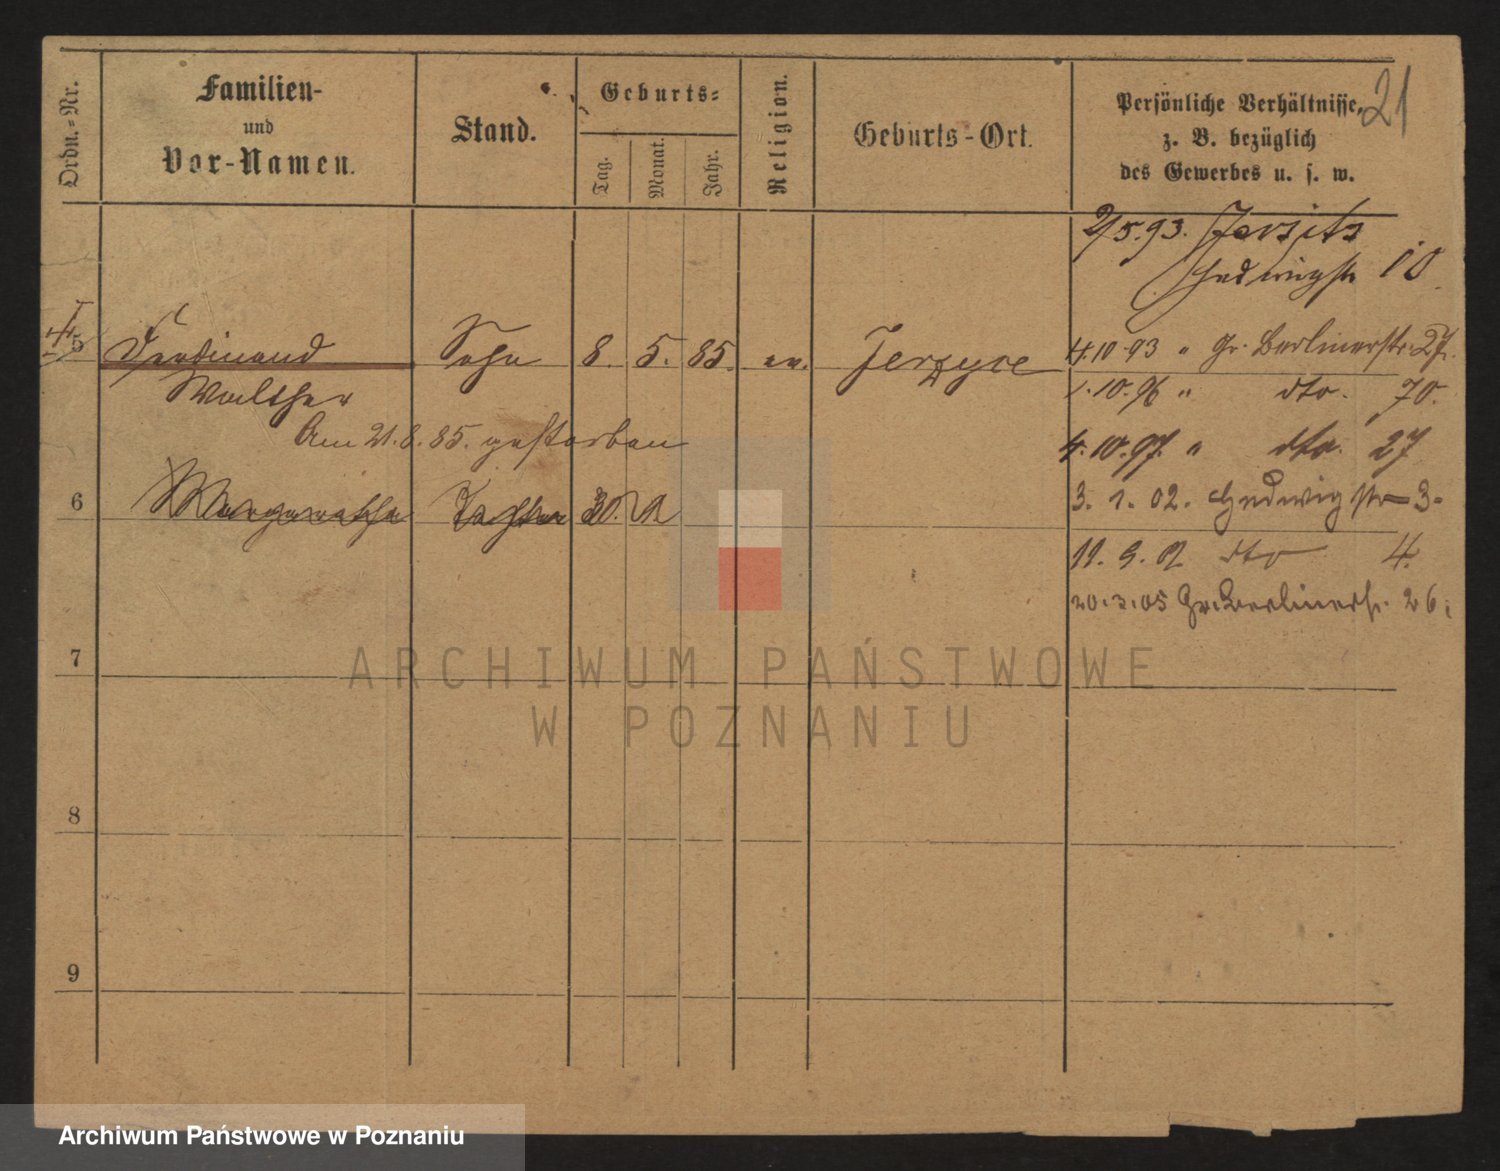 21
Ordn.-Nr.
Familien-
und
Vor-Namen.
Stand.
Geburts-
Tag.
Monat.
Jahr.
Religion.
Geburts-Ort.
Persönliche Verhältnisse,
z. B. bezüglich
des Gewerbes u. s. w.
2/5.93. Jersitz
Hedwigstr 10
5 Ferdinand Sohn 8. 5. 85. ev. Jerzyce
Walther
Am 21.8.85. gestorben
4.10.93 " Gr. Berlinerstr. 27.
1.10.96 " dto. 70.
4.10.97. " dto. 27
6 Margarethe Tochter 30.
3. 1. 02. Hedwigstr 3-
11. 9. 02 dto 4.
20.3.05 Gr. Berlinerstr. 26;
7
8
9
ARCHIWUM PAŃSTWOWE
W POZNANIU
Archiwum Państwowe w Poznaniu